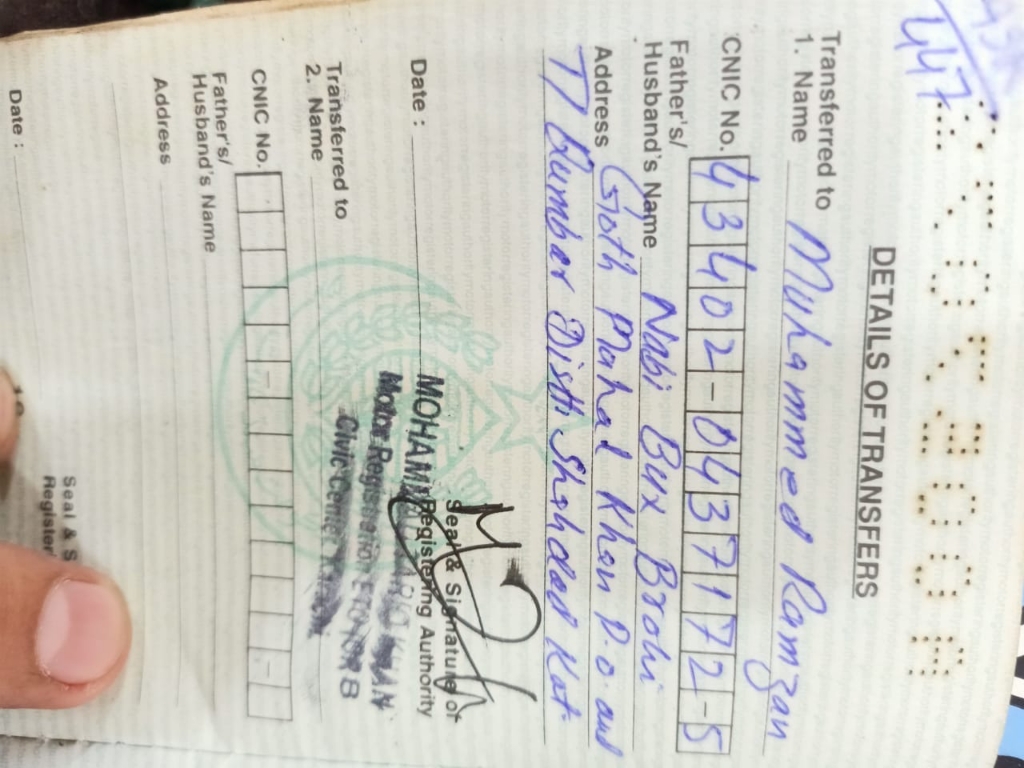 447
DETAILS OF TRANSFERS
Transferred to
1. Name Muhammed Ramzan
CNIC No. 43402-0437172-5
Father's/
Husband's Name Nabi Bux Brohi
Address Goth Mahal Khan P.O. and
Distt Shahdad Kot.
Seal & Signature of
Date : Registering Authority
MOHAMM
Motor Registration
Civic Center
Transferred to
2. Name
CNIC No.
Father's/
Husband's Name
Address
Seal & S
Date : Register